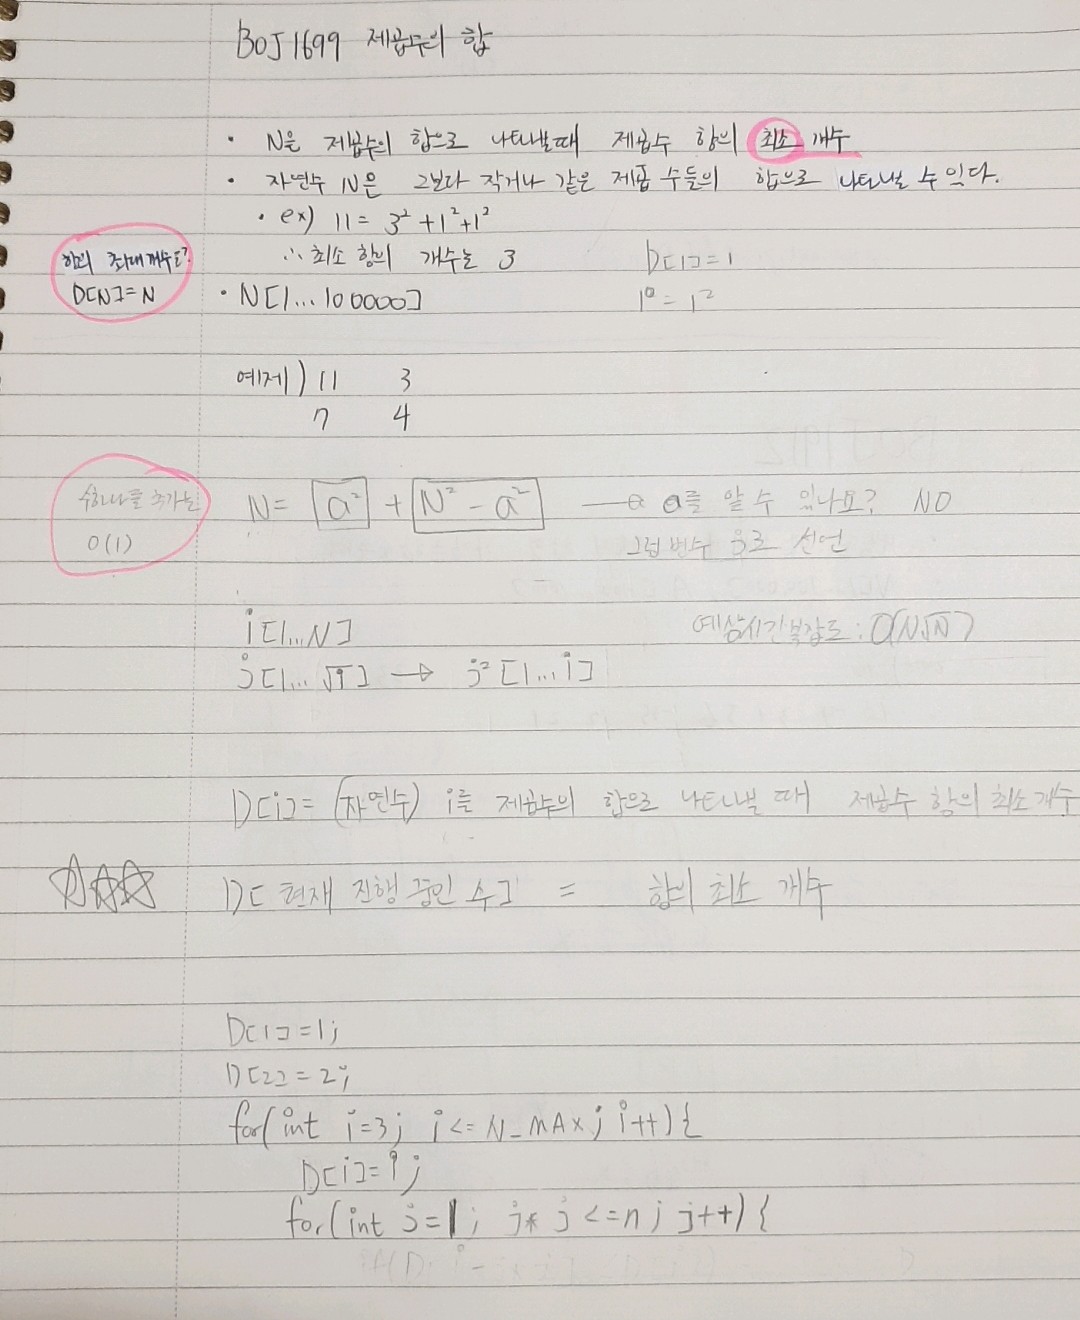 BOJ 1699 제곱수의 합
· N을 제곱수의 합으로 나타낼때 제곱수 항의 최소 개수
· 자연수 N은 그보다 작거나 같은 제곱 수들의 합으로 나타낼 수 있다.
· ex) 11 = 3² + 1² + 1²
∴ 최소 항의 개수는 3
D[1] = 1
항의 최대 개수는?
D[N] = N
· N[1...100000]
1 = 1²
예제) 11 3
7 4
수하나를 추가는
O(1)
N = a² + N² - a² → a를 알 수 있나요? NO
그럼 변수 j로 선언
i [1...N]
예상시간복잡도 : O(N√N)
j [1... √i] → j² [1...i]
D[i] = (자연수) i를 제곱수의 합으로 나타낼 때 제곱수 항의 최소개수
☆☆☆ D[현재 진행 중인 수] = 항의 최소 개수
D[1] = 1;
D[2] = 2;
for(int i=3; i<= N_MAX; i++){
D[i] = i;
for(int j=1; j* j <=n; j++){